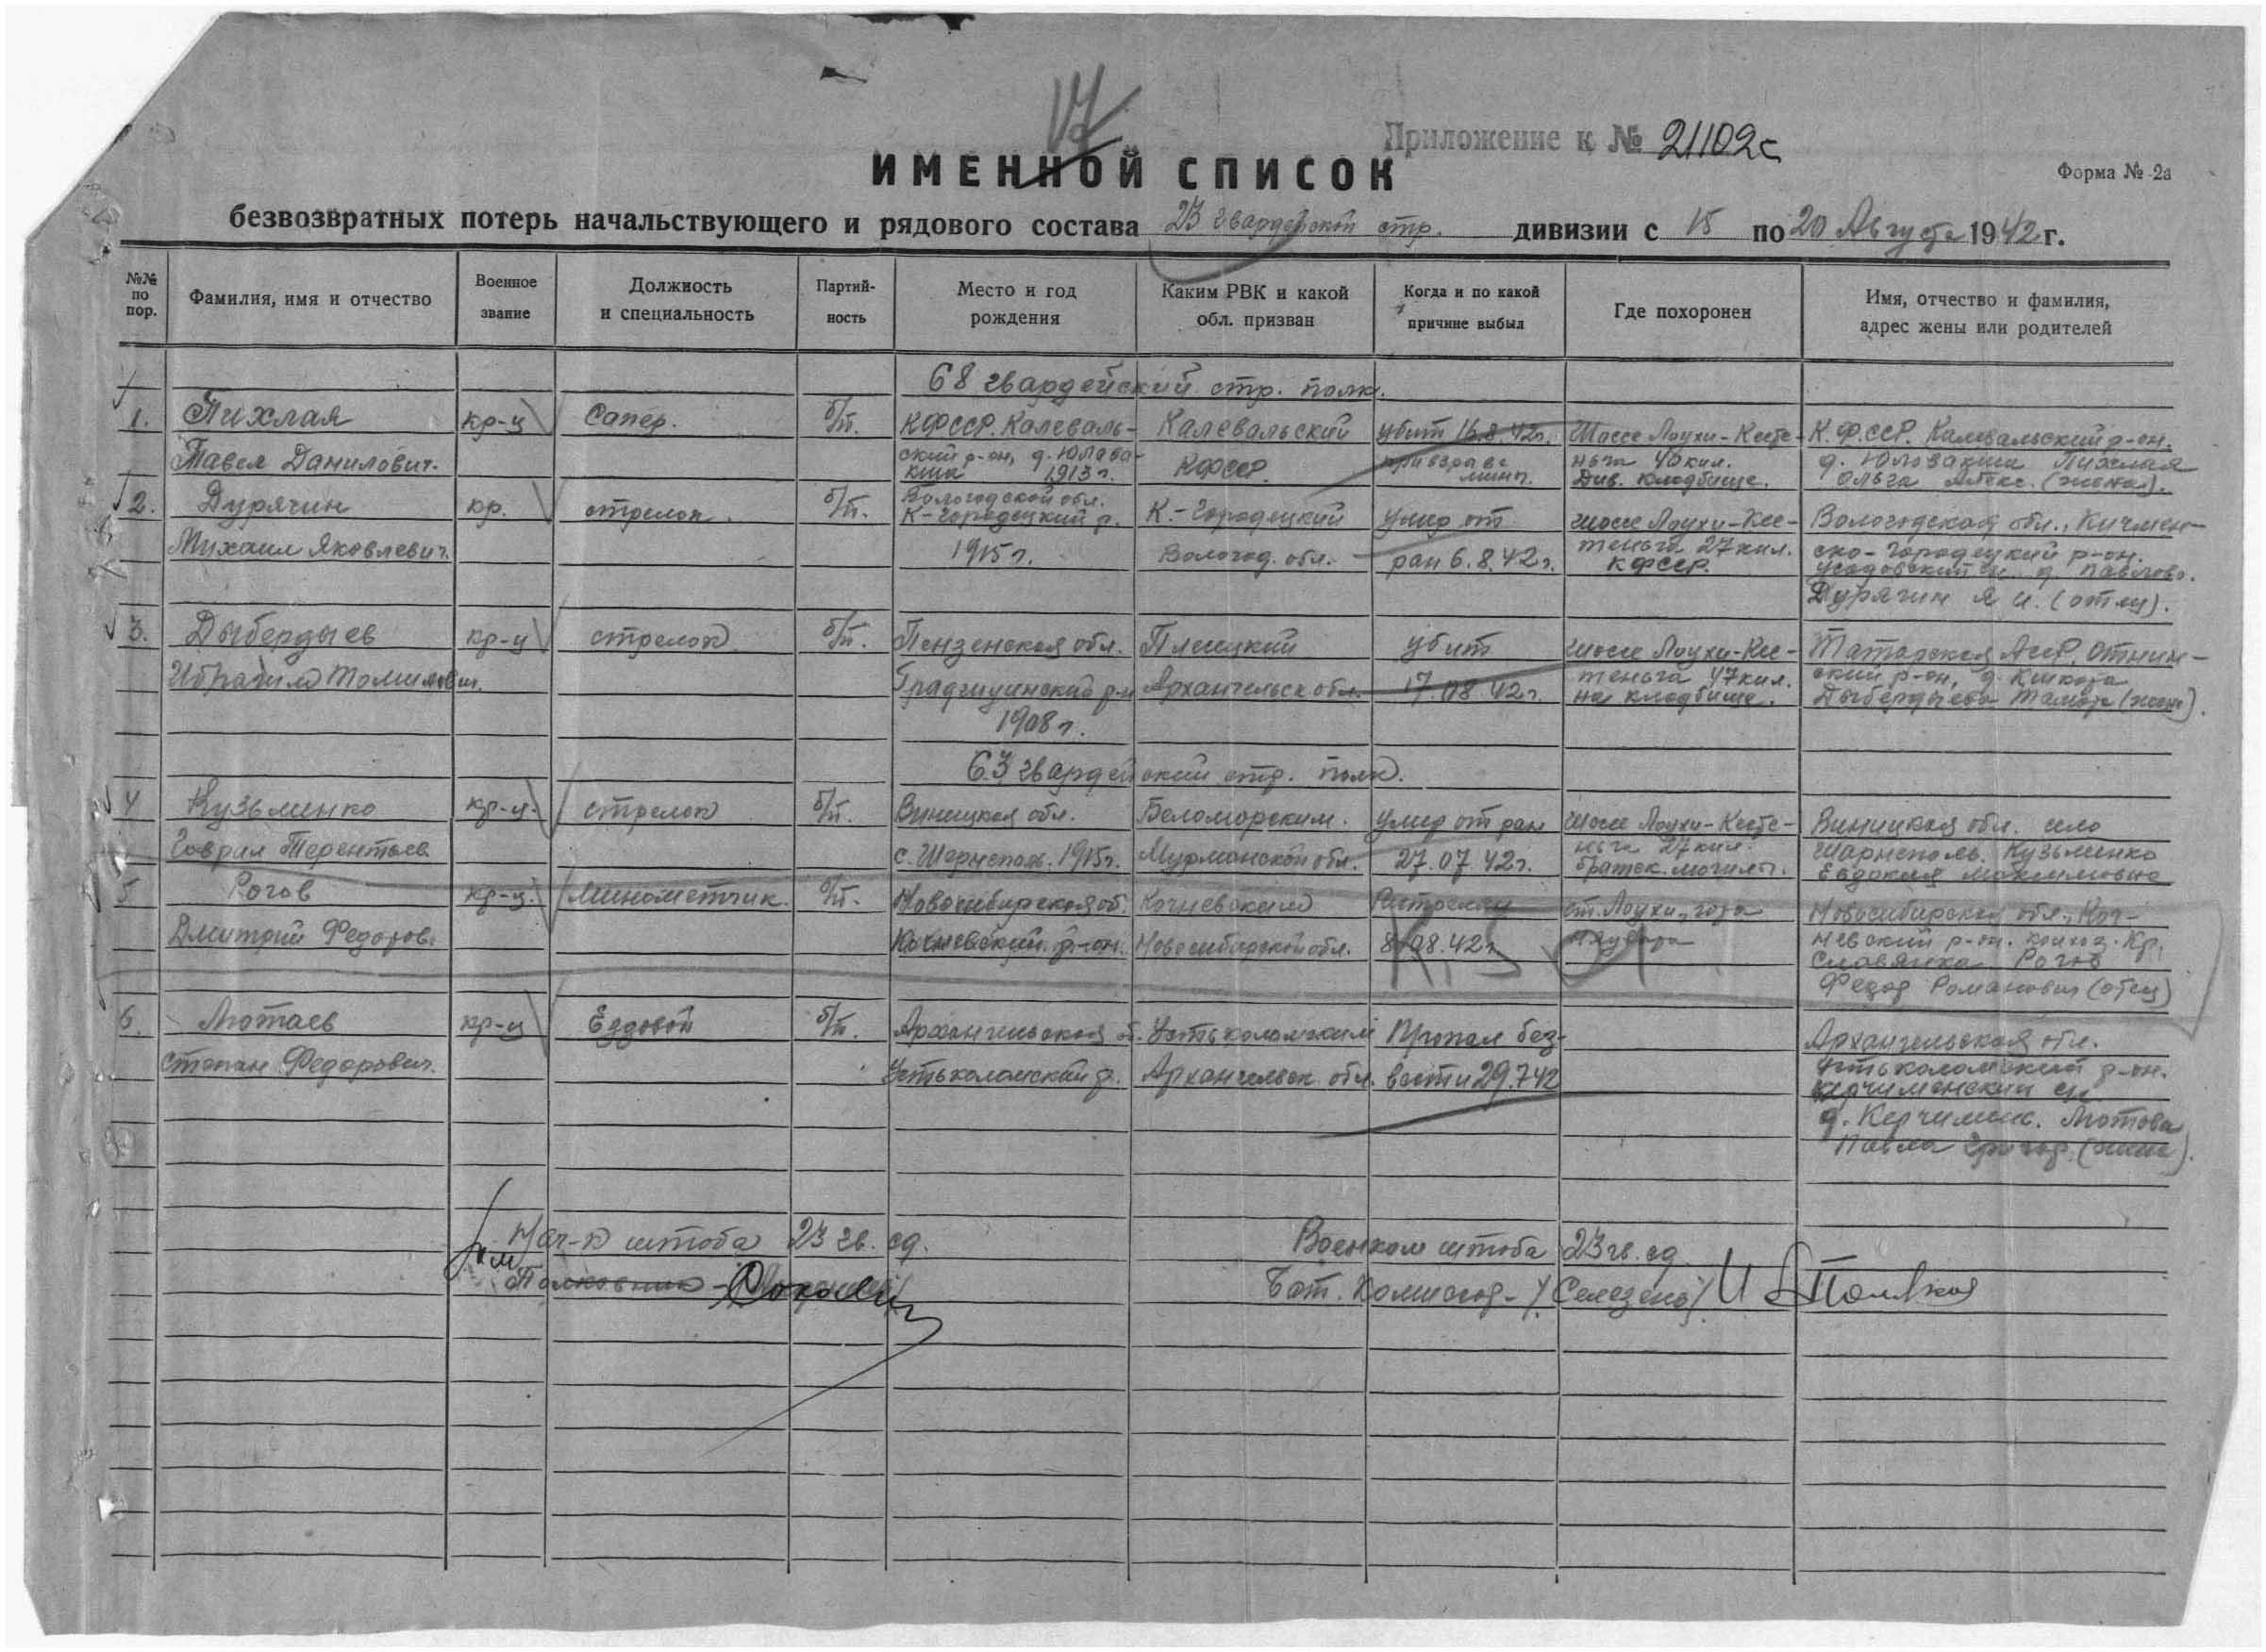 Приложение к № 21102с
ИМЕННОЙ СПИСОК
Форма № 2а
безвозвратных потерь начальствующего и рядового состава 23 гвардейской стр. дивизии с 15 по 20 Августа 1942 г.
№№ по пор.
Фамилия, имя и отчество
Военное звание
Должность и специальность
Партий-ность
Место и год рождения
Каким РВК и какой обл. призван
Когда и по какой причине выбыл
Где похоронен
Имя, отчество и фамилия, адрес жены или родителей
68 гвардейский стр. полк.
1. Пихлая кр-ц Сапер. б/п. КФССР. Калеваль- Калевальский убит 16.8.42г. Шоссе Лоухи-Кесте- К.Ф.ССР. Калевальский р-он.
Павел Данилович. ский р-он, д. Юлава- КФССР. при взрыве ньга 40 кил. д. Пихлая
1913г. мин. Див. кладбище. Ольга Алекс. (жена).
2. Дурягин кр. стрелок. б/п. Вологодской обл. К.-Городецкий умер от шоссе Лоухи-Кес- Вологодская обл., Кичмен-
К-Городецкий р.
Михаил Яковлевич. 1915г. Вологод. обл. ран 6.8.42г. теньга 27 кил. ско-Городецкий р-он.
КФССР. д. Павлово.
Дурягин Я И. (отец).
3. Дыбердыев кр-ц стрелок б/п. Пензенская обл. убит шоссе Лоухи-Кес- Татарская АССР,
Ибрагим р-н Архангельск обл. 17.08.42г. теньга 47 кил. ский р-он, д.
1908г. на кладбище. Дыбердыева (жена).
63 гвардейский стр. полк.
4 Кузьменко кр-ц. стрелок б/п. Виницкая обл. Беломорским. умер от ран шоссе Лоухи-Кесте- Виницкая обл. село
Гаврил Терентьев. 1915г. Мурманской обл. 27.07.42г. ньга 27 кил. Кузьменко
братск. могила. Евдокия
5 Рогов кр-ц. Минометчик. б/п. Новосибирская об. Кочневским ст. Лоухи, Новосибирская обл., Коч-
Дмитрий Федоров. Кочневский р-он. Новосибирской обл. 8.08.42г. невский р-он. колхоз. Кр.
Славянка Рогов
Федор Романович (отец)
6. Мотаев кр-ц Ездовой б/п. Архангельская о. Устькаломским Пропал без- Архангельская обл.
Степан Федорович. Устькаломский р. Архангельск обл. вести 29.7.42 Устькаломский р-он.
Керчименский
д. Мотова
Григор. (жена).
Нач-к штаба 23 гв. сд.
Военком штаба 23 гв. сд.
Полковник
Бат. Комиссар - /Селезень/